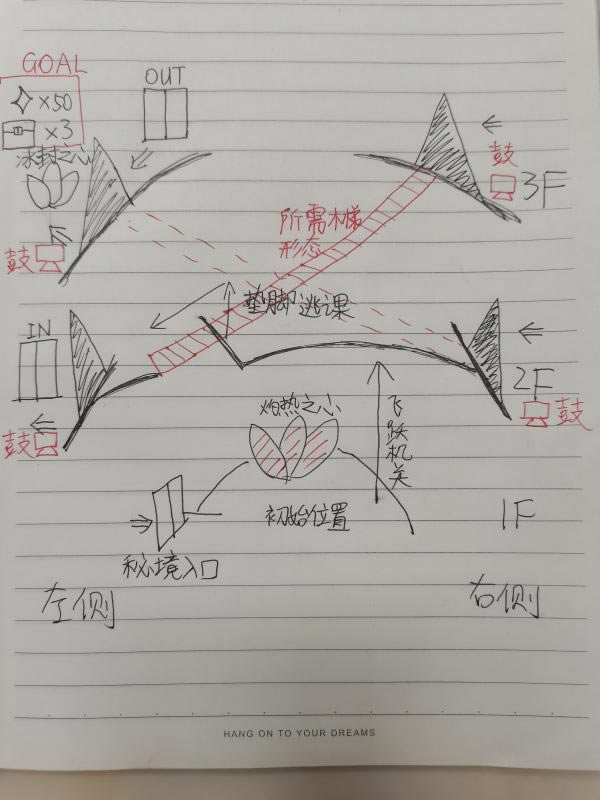 GOAL
OUT
×50
×3
冰封之心
鼓
3F
所需木梯
形态
鼓
垫脚逃课
IN
2F
鼓
灼热之心
鼓
飞跃机关
初始位置
1F
秘境入口
左侧
右侧
HANG ON TO YOUR DREAMS